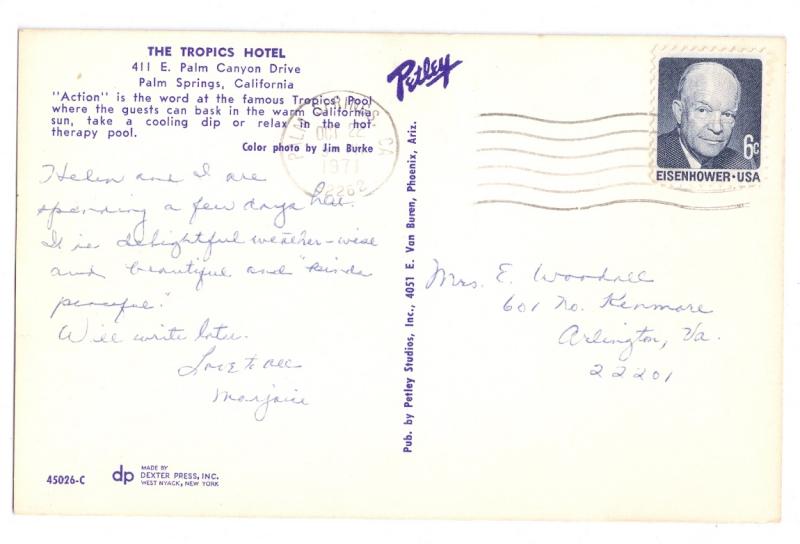 THE TROPICS HOTEL
411 E. Palm Canyon Drive
Palm Springs, California
"Action" is the word at the famous Tropics' Pool
where the guests can bask in the warm California
sun, take a cooling dip or relax in the hot
therapy pool.
Color photo by Jim Burke
Helen and I are
spending a few days here.
It is delightful weather-wise
and beautiful and "kinda
peaceful."
Will write later.
Love to all
Marjorie
45026-C
dp
MADE BY
DEXTER PRESS, INC.
WEST NYACK, NEW YORK
Petley
Pub. by Petley Studios, Inc., 4051 E. Van Buren, Phoenix, Ariz.
PALM SPRINGS, CA
OCT 22
1971
92262
6c
EISENHOWER·USA
Mrs. E. Woodall
601 No. Kenmore
Arlington, Va.
22201